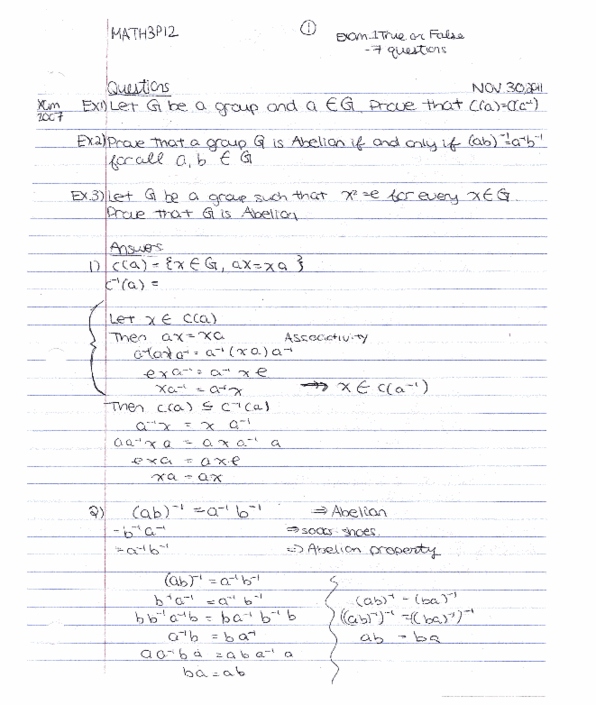 MATH3P12
①
Exam 1 True or False
- 7 questions
Questions
NOV 30, 2011
Ex1) Let G be a group and a ∈ G. Prove that C(a)=C(a⁻¹)
2007
Ex.2) Prove that a group G is Abelian if and only if (ab)⁻¹=a⁻¹b⁻¹
for all a, b ∈ G
Ex.3) Let G be a group such that x²=e for every x∈G.
Prove that G is Abelian
Answers
1) C(a) = {x ∈ G, ax=xa }
C⁻¹(a) =
Let x ∈ C(a)
Then ax=xa Associativity
a⁻¹(ax)a⁻¹ = a⁻¹(xa)a⁻¹
exa⁻¹ = a⁻¹xe
xa⁻¹ = a⁻¹x ⇒ x ∈ C(a⁻¹)
Then C(a) ⊆ C⁻¹(a)
a⁻¹x = x a⁻¹
aa⁻¹xa = axa⁻¹a
exa = axe
xa = ax
2) (ab)⁻¹ = a⁻¹b⁻¹ ⇒ Abelian
= b⁻¹a⁻¹ ⇒ socks-shoes
= a⁻¹b⁻¹ ⇒ Abelian property
(ab)⁻¹ = a⁻¹b⁻¹
b⁻¹a⁻¹ = a⁻¹b⁻¹
bb⁻¹a⁻¹b = ba⁻¹b⁻¹b
a⁻¹b = ba⁻¹
aa⁻¹ba = aba⁻¹a
ba = ab
(ab)⁻¹ = (ba)⁻¹
((ab)⁻¹)⁻¹ = ((ba)⁻¹)⁻¹
ab = ba